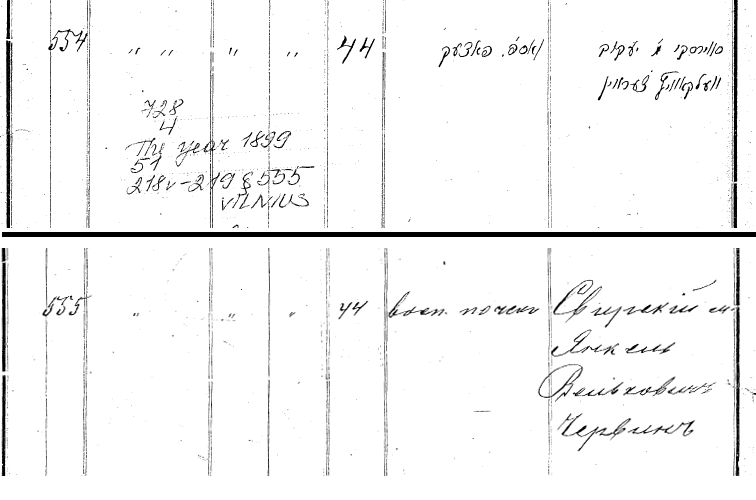 554 " " " " 44 וואספ. פאצעק סווירסקי יעקוב
צערווין
728
4
The year 1899
51
218v-219 § 555
VILNIUS
555 " " " 44 восп. почекъ Свирскій м.
Янкель
Вельковичъ
Червинъ